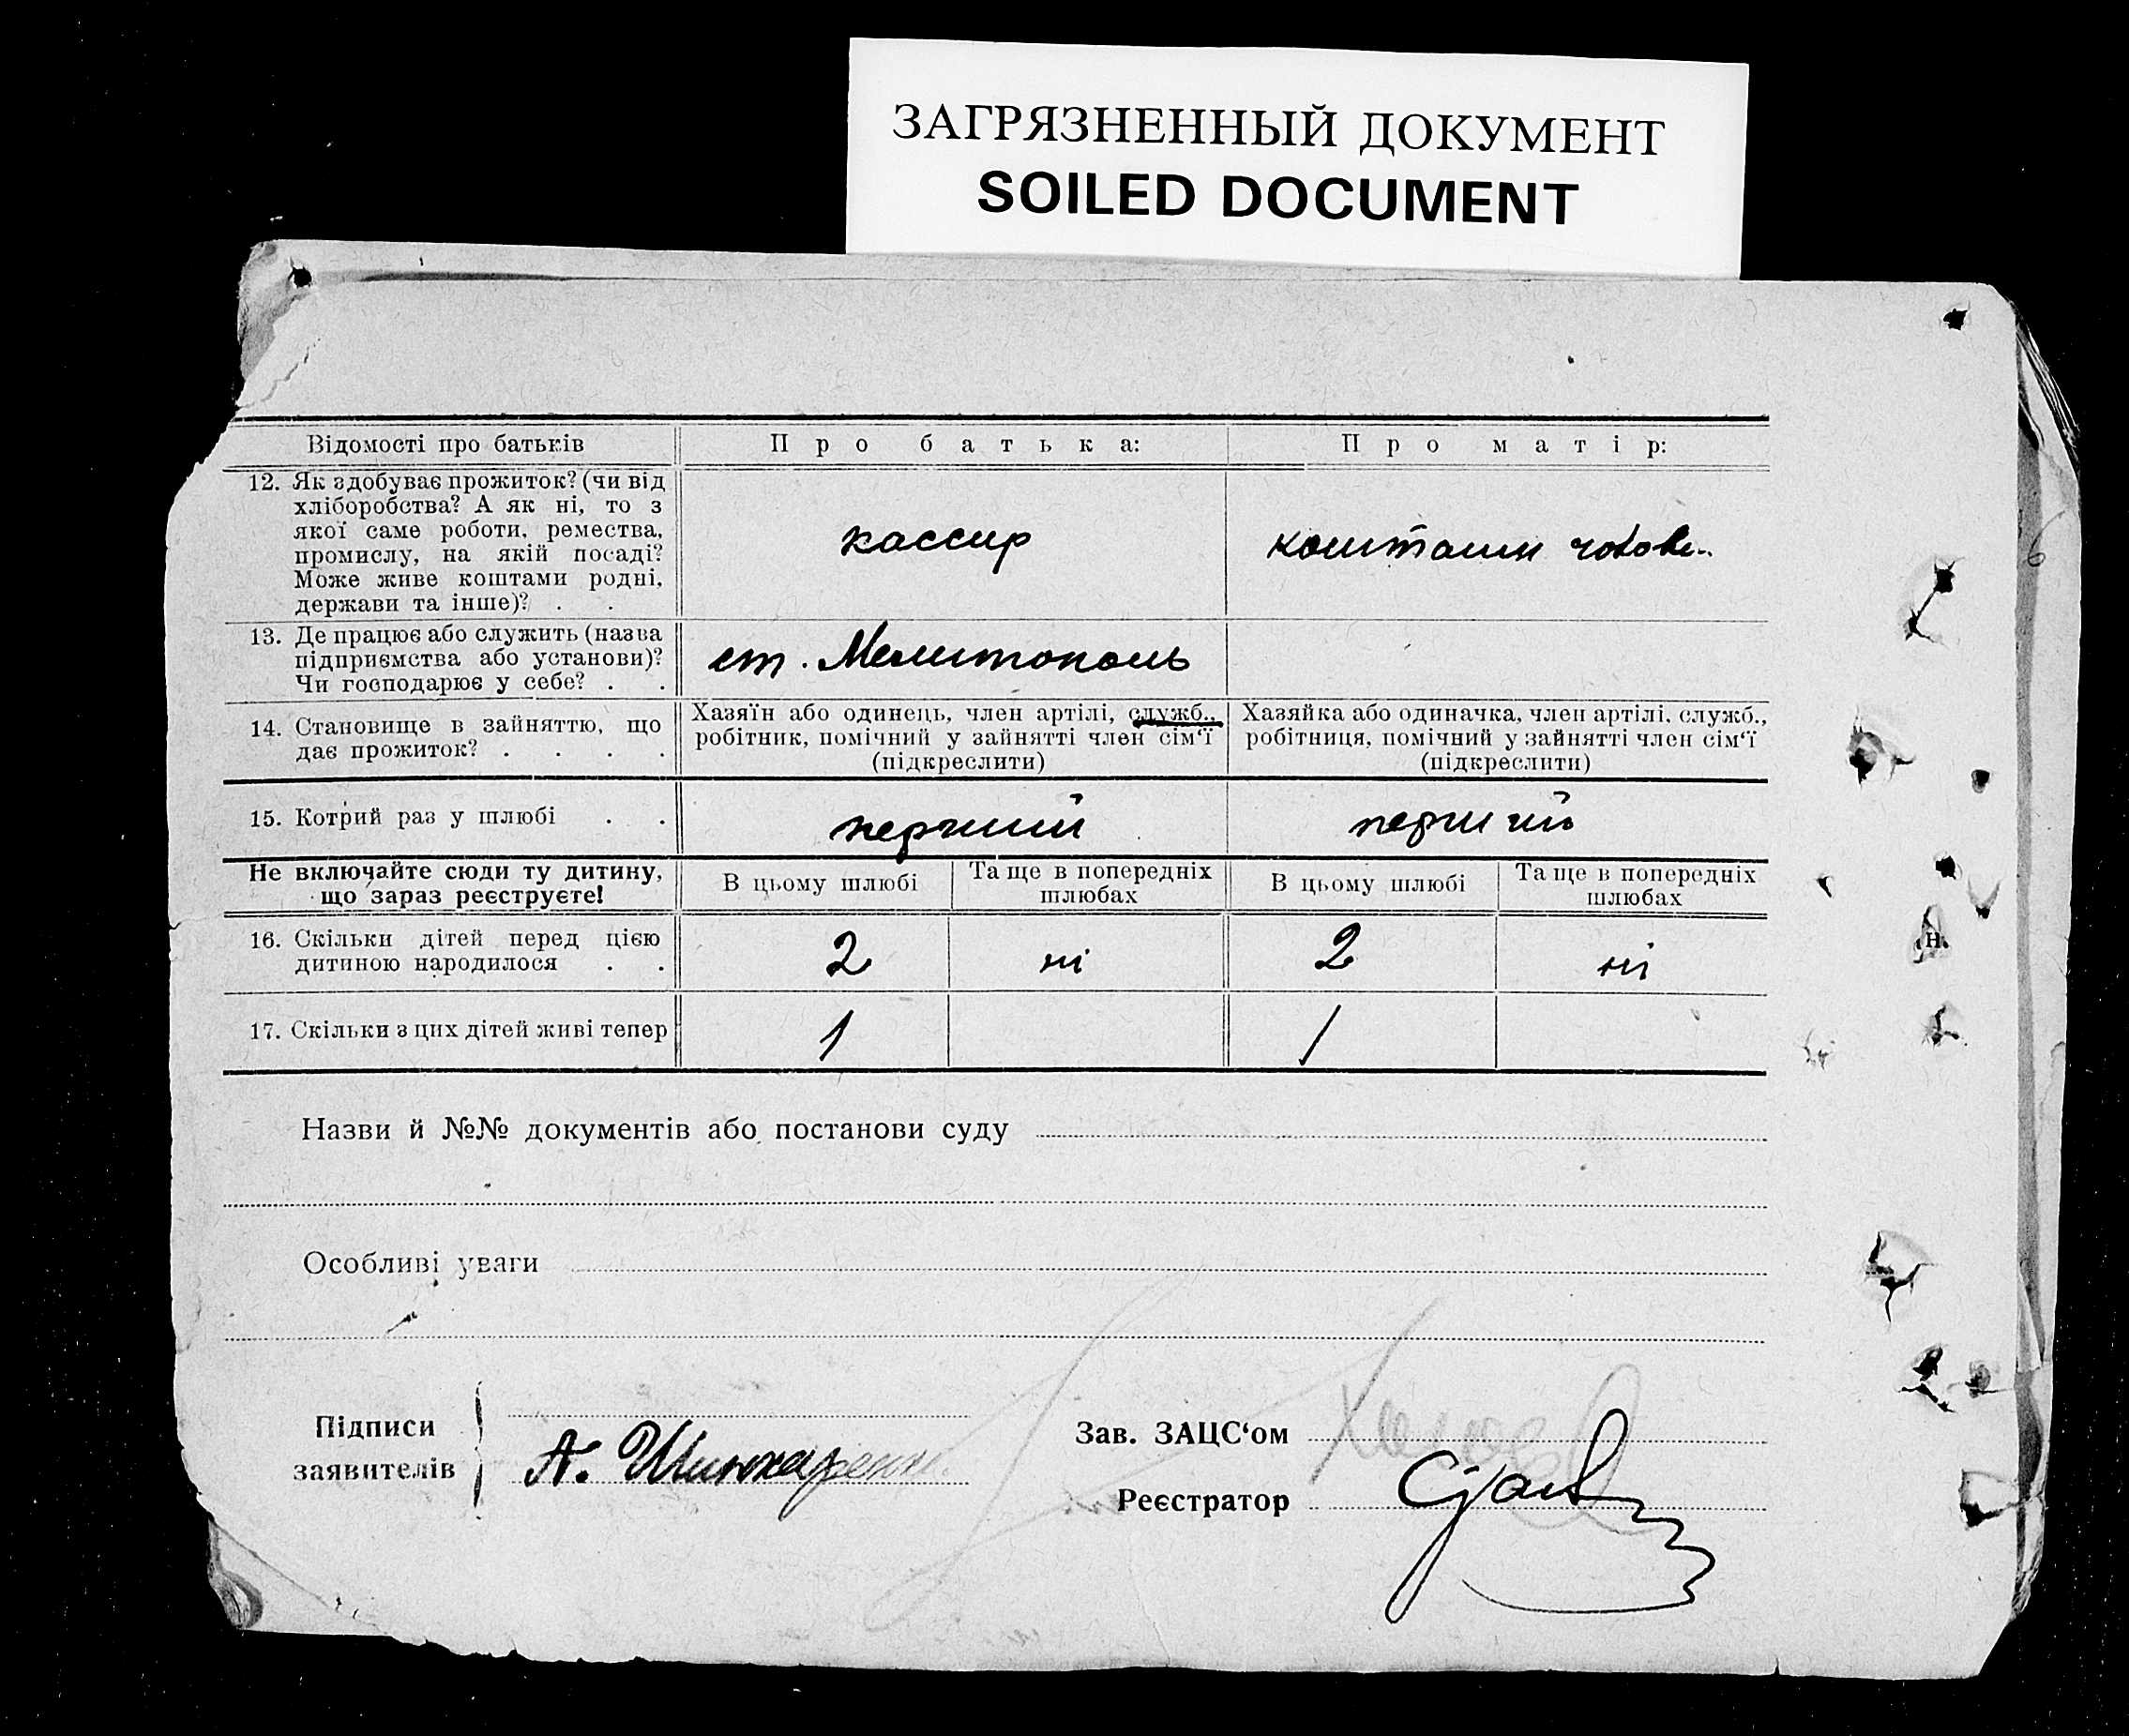 ЗАГРЯЗНЕННЫЙ ДОКУМЕНТ
SOILED DOCUMENT
Відомості про батьків
Про батька:
Про матір:
12. Як здобуває прожиток? (чи від
хліборобства? А як ні, то з
якої саме роботи, ремества,
промислу, на якій посаді?
Може живе коштами родні,
держави та інше)? . .
кассир
коштами чолов..
13. Де працює або служить (назва
підприємства або установи)?
Чи господарює у себе? . .
ст. Мелитополь
14. Становище в зайняттю, що
дає прожиток? . . . .
Хазяїн або одинець, член артілі, служб.,
робітник, помічний у зайнятті член сім‘ї
(підкреслити)
Хазяйка або одиначка, член артілі, служб.,
робітниця, помічний у зайнятті член сім‘ї
(підкреслити)
15. Котрий раз у шлюбі . .
перший
перший
Не включайте сюди ту дитину,
що зараз реєструєте!
В цьому шлюбі
Та ще в попередніх
шлюбах
В цьому шлюбі
Та ще в попередніх
шлюбах
16. Скільки дітей перед цією
дитиною народилося . .
2
ні
2
ні
17. Скільки з цих дітей живі тепер
1
1
Назви й №№ документів або постанови суду
Особливі уваги
Підписи
заявителів
А. Шинкаренко
Зав. ЗАЦС‘ом
Реєстратор
н.
6